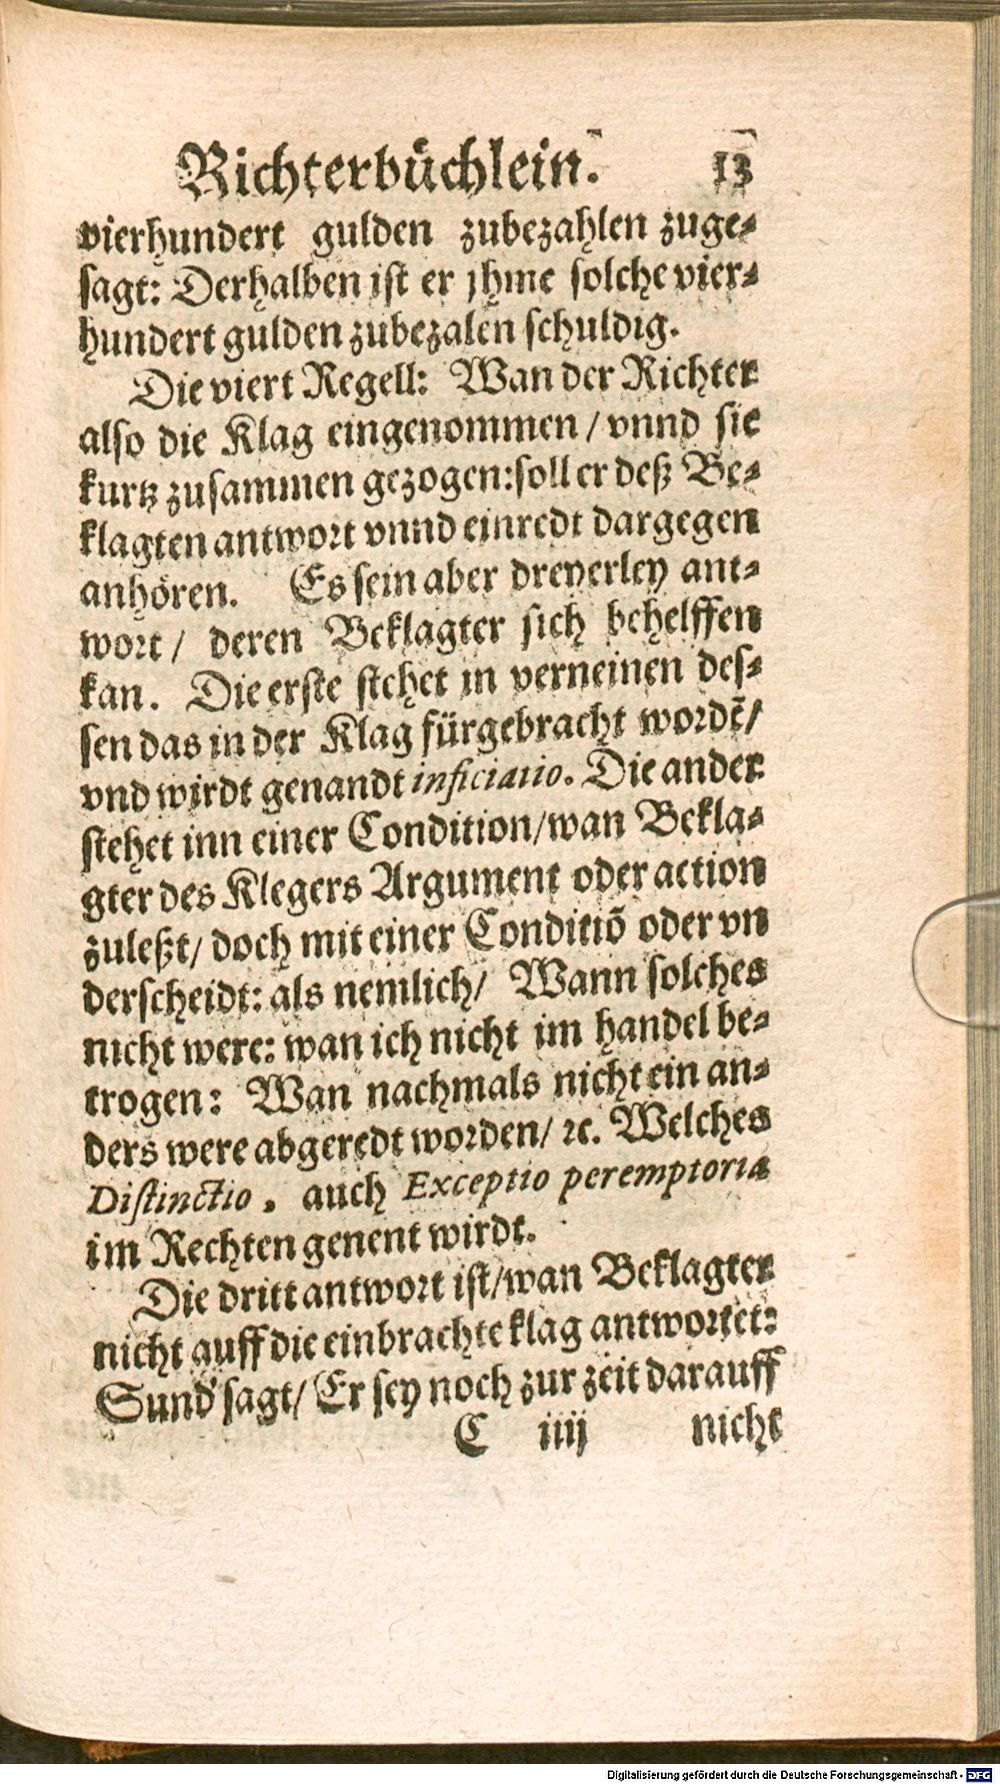 Richterbüchlein. 13
vierhundert gulden zubezahlen zuge-
sagt: Derhalben ist er jhme solche vier-
hundert gulden zubezalen schuldig.
Die viert Regell: Wan der Richter
also die Klag eingenommen/ vnnd sie
kurtz zusammen gezogen: soll er deß Be-
klagten antwort vnnd einredt dargegen
anhören. Es sein aber dreyerley ant-
wort/ deren Beklagter sich behelffen
kan. Die erste stehet in verneinen des-
sen das in der Klag fürgebracht wordẽ/
vnd wirdt genandt inficiatio. Die ander
stehet inn einer Condition/ wan Bekla-
gter des Klegers Argument oder action
zuleßt/ doch mit einer Conditiõ oder vn
derscheidt: als nemlich/ Wann solches
nicht were: wan ich nicht im handel be-
trogen: Wan nachmals nicht ein an-
ders were abgeredt worden/ ꝛc. Welches
Distinctio, auch Exceptio peremptoria
im Rechten genent wirdt.
Die dritt antwort ist/ wan Beklagter
nicht auff die einbrachte klag antwortet:
Sund' sagt/ Er sey noch zur zeit darauff
C iiij nicht
Digitalisierung gefördert durch die Deutsche Forschungsgemeinschaft - DFG